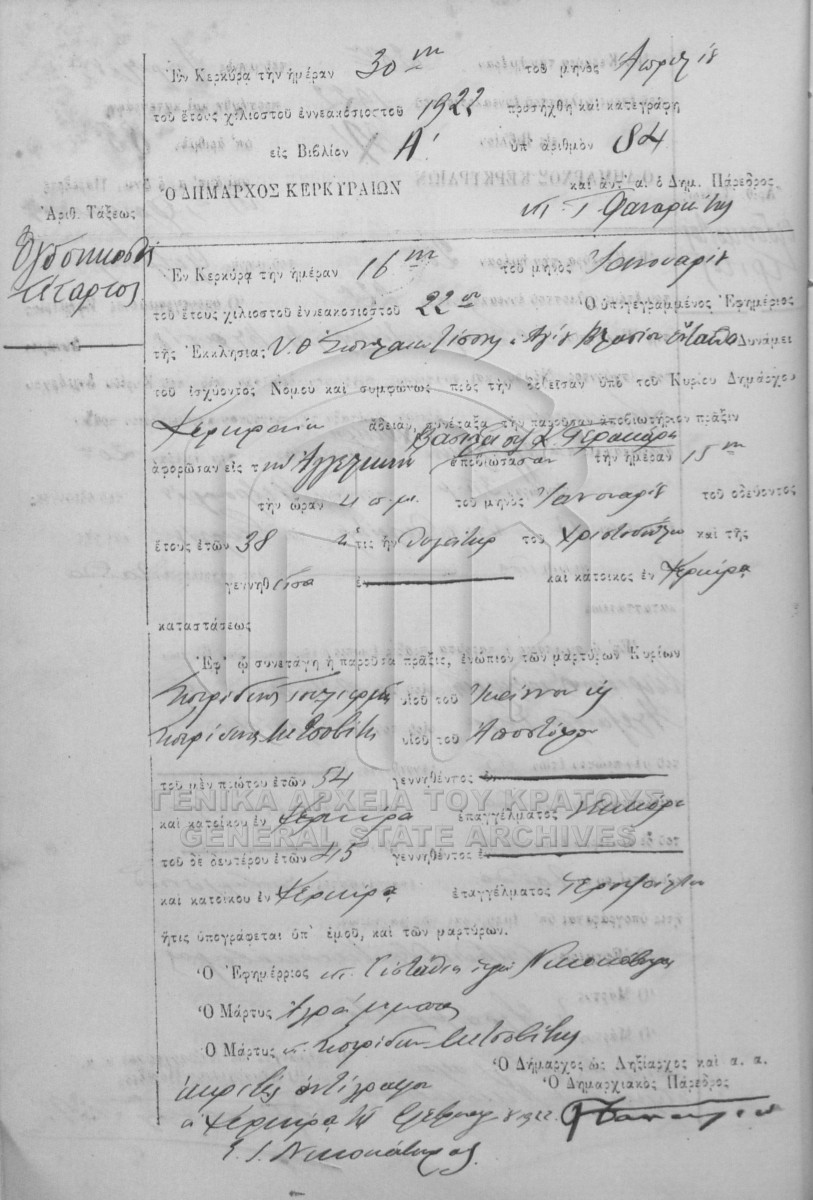 Ἐν Κερκύρᾳ τὴν ἡμέραν 30ην τοῦ μηνὸς Ἀπριλίου
τοῦ ἔτους χιλιοστοῦ ἐννεακοσιοστοῦ 1922 προσήχθη καὶ κατεγράφη
εἰς Βιβλίον Α' ὑπ' ἀριθμὸν 84
Ὁ ΔΗΜΑΡΧΟΣ ΚΕΡΚΥΡΑΙΩΝ καὶ ἀντ' α. ὁ Δημ. Πάρεδρος
Ἀριθ. Τάξεως
Ὀγδοηκοστὴ
τετάρτη
Ἐν Κερκύρᾳ τὴν ἡμέραν 16ην τοῦ μηνὸς Ἰανουαρίου
τοῦ ἔτους χιλιοστοῦ ἐννεακοσιοστοῦ 22ου Ὁ ὑπογεγραμμένος Ἐφημέριος
τῆς Ἐκκλησίας Υ.Θ. Σπηλαιωτίσσης Ἁγίου Βλασίου Δυνάμει
τοῦ ἰσχύοντος Νόμου καὶ συμφώνως πρὸς τὴν δοθεῖσαν ὑπὸ τοῦ Κυρίου Δημάρχου
Κερκυραίων ἄδειαν, συνέταξα τὴν παροῦσαν ἀποβιωτήριον πρᾶξιν
ἀφορῶσαν εἰς τὴν Ἀγγελικὴν ἀποβιώσασαν τὴν ἡμέραν 15ην
τὴν ὥραν 4 π.μ. τοῦ μηνὸς Ἰανουαρίου τοῦ ὁδεύοντος
ἔτους ἐτῶν 38 ἥτις ἦν θυγάτηρ τοῦ Χριστοδούλου καὶ τῆς
γεννηθεῖσα ἐν καὶ κάτοικος ἐν Κερκύρᾳ
καταστάσεως
Ἐφ' ᾧ συνετάγη ἡ παροῦσα πρᾶξις, ἐνώπιον τῶν μαρτύρων Κυρίων
Σπυρίδωνος υἱοῦ τοῦ Ἰωάννου καὶ
Σπυρίδωνος Μετσοβίτη υἱοῦ τοῦ Ἀποστόλου
τοῦ μὲν πρώτου ἐτῶν 54 γεννηθέντος ἐν
ΓΕΝΙΚΑ ΑΡΧΕΙΑ ΤΟΥ ΚΡΑΤΟΥΣ
καὶ κατοίκου ἐν Κερκύρᾳ ἐπαγγέλματος
GENERAL STATE ARCHIVES
τοῦ δὲ δευτέρου ἐτῶν 45 γεννηθέντος ἐν
καὶ κατοίκου ἐν Κερκύρᾳ ἐπαγγέλματος Ἱεροψάλτου
ἥτις ὑπογράφεται ὑπ' ἐμοῦ, καὶ τῶν μαρτύρων.
Ὁ Ἐφημέρριος
Ὁ Μάρτυς Ἀγράμματος
Ὁ Μάρτυς Σπυρίδων Μετσοβίτης
Ὁ Δήμαρχος ὡς Ληξίαρχος καὶ α. α.
Ὁ Δημαρχιακὸς Πάρεδρος
ἀκριβὲς ἀντίγραφον